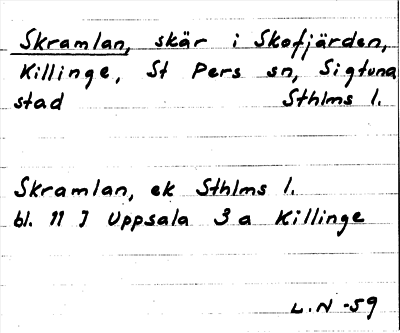 Skramlan, skär i Skofjärden,
Killinge, St Pers sn, Sigtuna
stad Sthlms l.
Skramlan, ek Sthlms l.
bl. 11 I Uppsala 3a Killinge
L.N -59